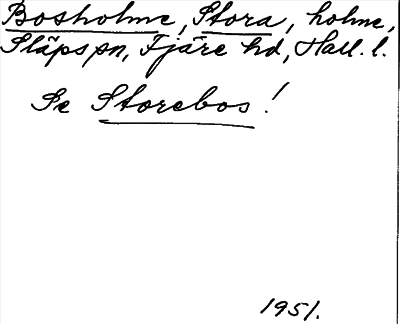 Bosholme, Stora, holme,
Släps sn, Fjäre hd, Hall. l.
Se Storebos!
1951.